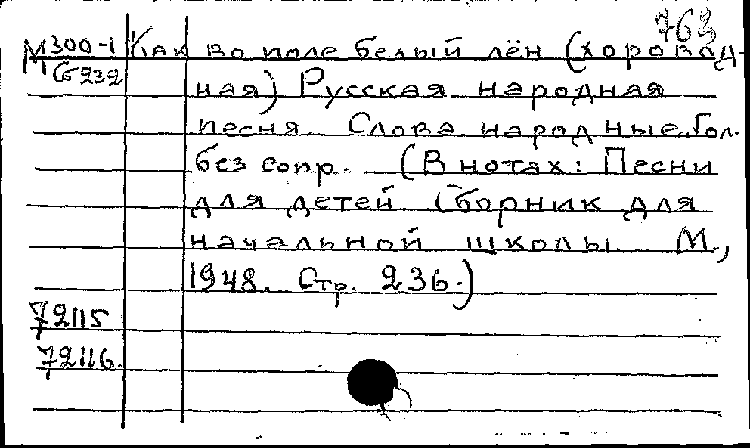 763
М300-1 Как во поле белый лён (хоровод-
С232 ная) Русская народная
песня. Слова народные. Гол.
без сопр. (В нотах: Песни
для детей Сборник для
начальной школы М.,
1948. Стр. 236.)
72115
72116.